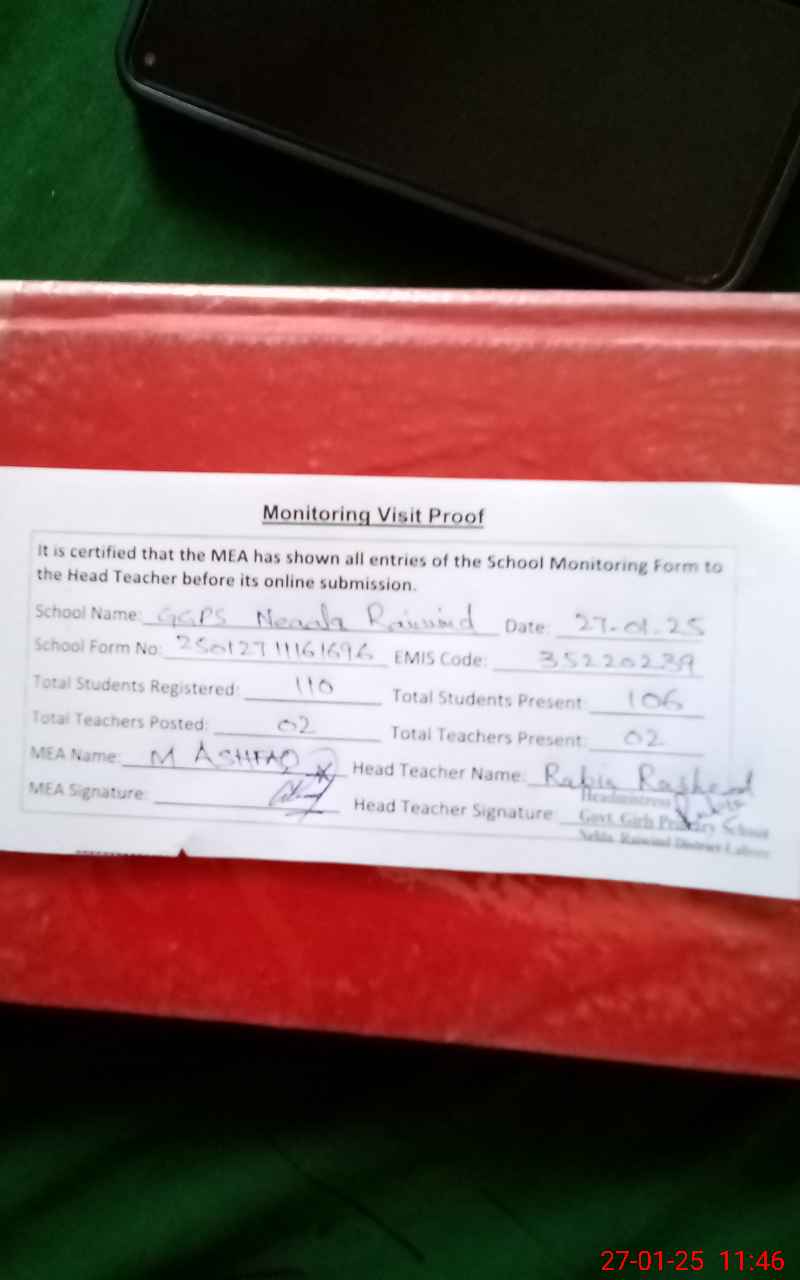 Monitoring Visit Proof
It is certified that the MEA has shown all entries of the School Monitoring Form to
the Head Teacher before its online submission.
School Name: GGPS Raiwind Date: 27-01-25
School Form No: 25012711161696 EMIS Code: 35220239
Total Students Registered: 110 Total Students Present: 106
Total Teachers Posted: 02 Total Teachers Present: 02
MEA Name: M ASHFAQ Head Teacher Name: Rabia Rasheed
MEA Signature: Head Teacher Signature
Headmistress
Govt. Girls Primary School
Raiwind District Lahore
27-01-25 11:46